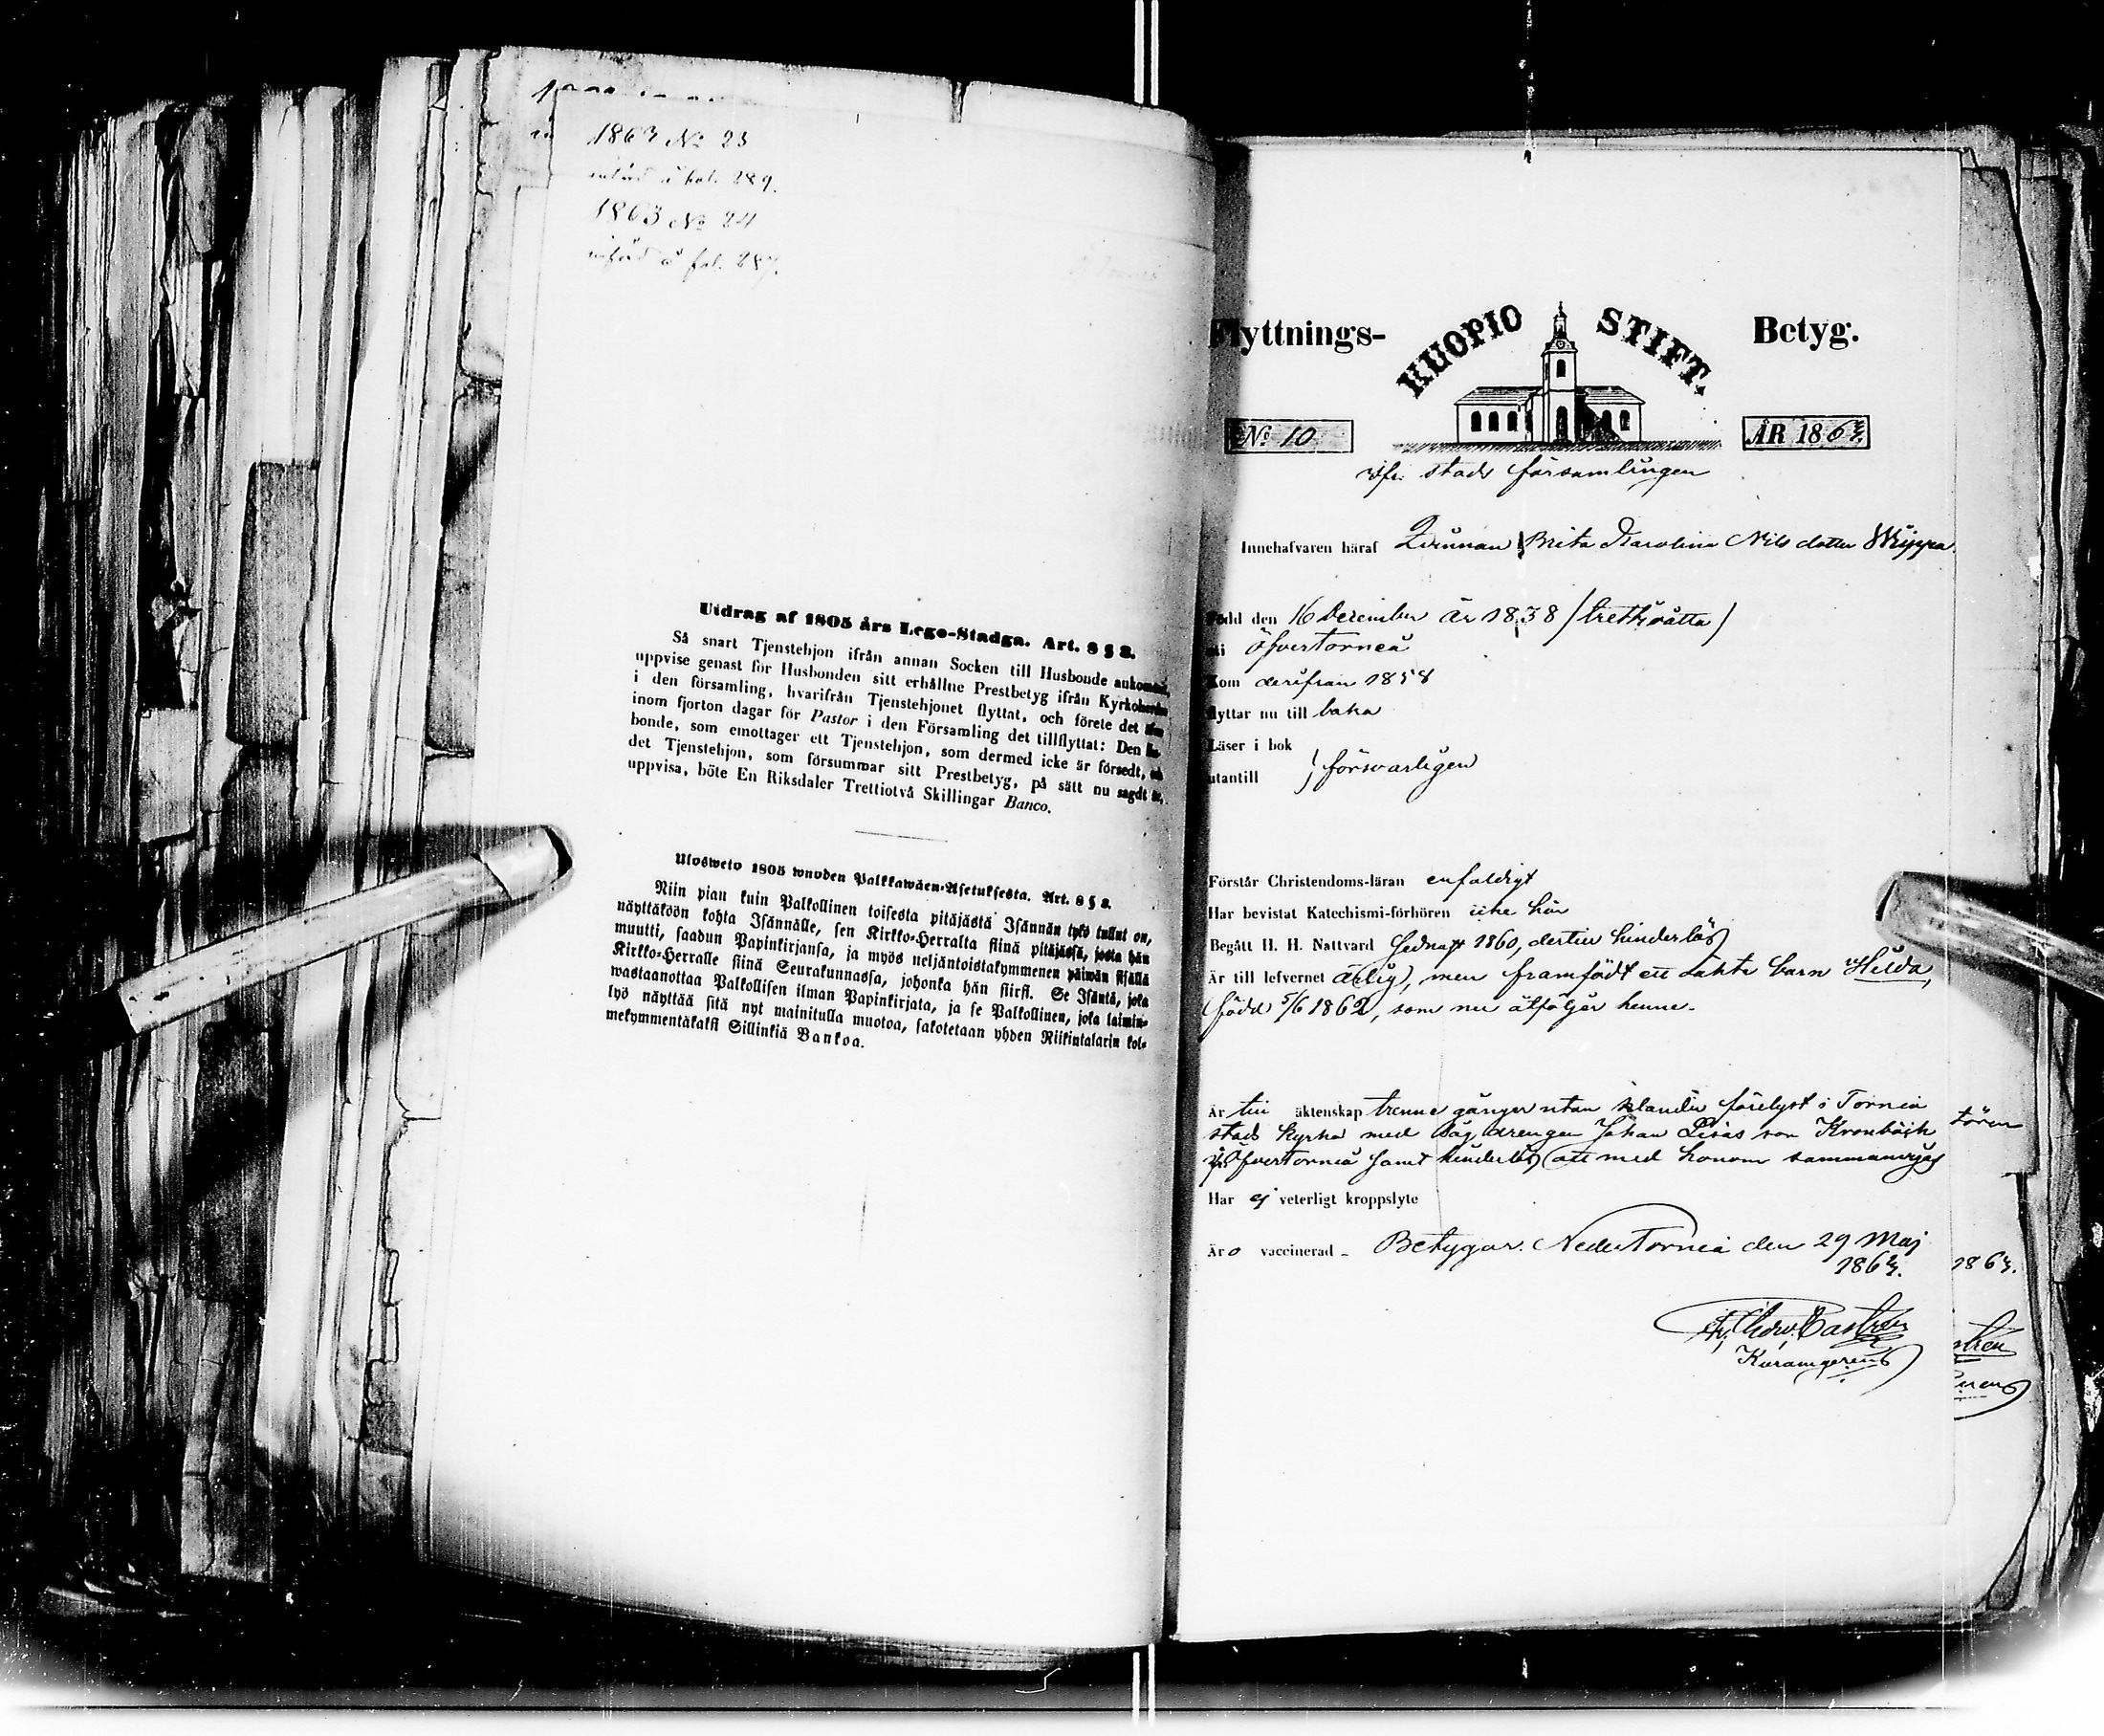 1863 No 23
införd å fol. 289.
1863 No 24
införd å fol. 287.
Utdrag af 1805 års Lego-Stadga. Art. 8 § 2.
Så snart Tjenstehjon ifrån annan Socken till Husbonde ankommit,
uppvise genast för Husbonden sitt erhållne Prestbetyg ifrån Kyrkoherden
i den församling, hvarifrån Tjenstehjonet flyttat, och förete det
inom fjorton dagar för Pastor i den Församling det tillflyttat: Den
bonde, som emottager ett Tjenstehjon, som dermed icke är försedt,
det Tjenstehjon, som försummar sitt Prestbetyg, på sätt nu sagdt är,
uppvisa, böte En Riksdaler Trettiotvå Skillingar Banco.
Ulosweto 1805 wuoden Palkkawäen-Asetuksesta. Art. 8 § 2.
Niin pian kuin Palkollinen toisesta pitäjästä Isännän tykö tullut on,
näyttäköön kohta Isännälle, sen Kirkko-Herralta siinä pitäjässä, josta hän
muutti, saadun Papinkirjansa, ja myös neljäntoistakymmenen päiwän sisällä
Kirkko-Herralle siinä Seurakunnassa, johonka hän siirsi. Se Isäntä, joka
wastaanottaa Palkollisen ilman Papinkirjata, ja se Palkollinen, joka laimin-
lyö näyttää sitä nyt mainitulla muotoa, sakotetaan yhden Riikintalarin kol-
mekymmentäkaksi Sillinkiä Bankoa.
Flyttnings- KUOPIO STIFT. Betyg.
No 10 ÅR 1863.
stads församlingen
Innehafvaren häraf Qvinnan Brita Karolina Nils dotter Wippa
Född den 16 December år 1838 / trettiåtta /
i Öfvertorneå
Kom derifrån 1858
flyttar nu till baka
Läser i bok
utantill } försvarligen
Förstår Christendoms-läran enfaldigt
Har bevistat Katechismi-förhören icke här
Begått H. H. Nattvard sednast 1860, dertill hinderlös
Är till lefvernet ärlig, men framfödt ett oäkta barn Hilda,
född 5/6 1862, som nu åtföljer henne.
Är till äktenskap trenne gånger utan klander förelyst i Torneå
stads kyrka med drengen Johan son Kronbäck
Öfvertorneå samt hinderlös att med honom sammanvigas
Har ej veterligt kroppslyte
Är o vaccinerad - Betygar. NederTorneå den 29 Maj
1863.
Castrén
Kuramgerens
1863.